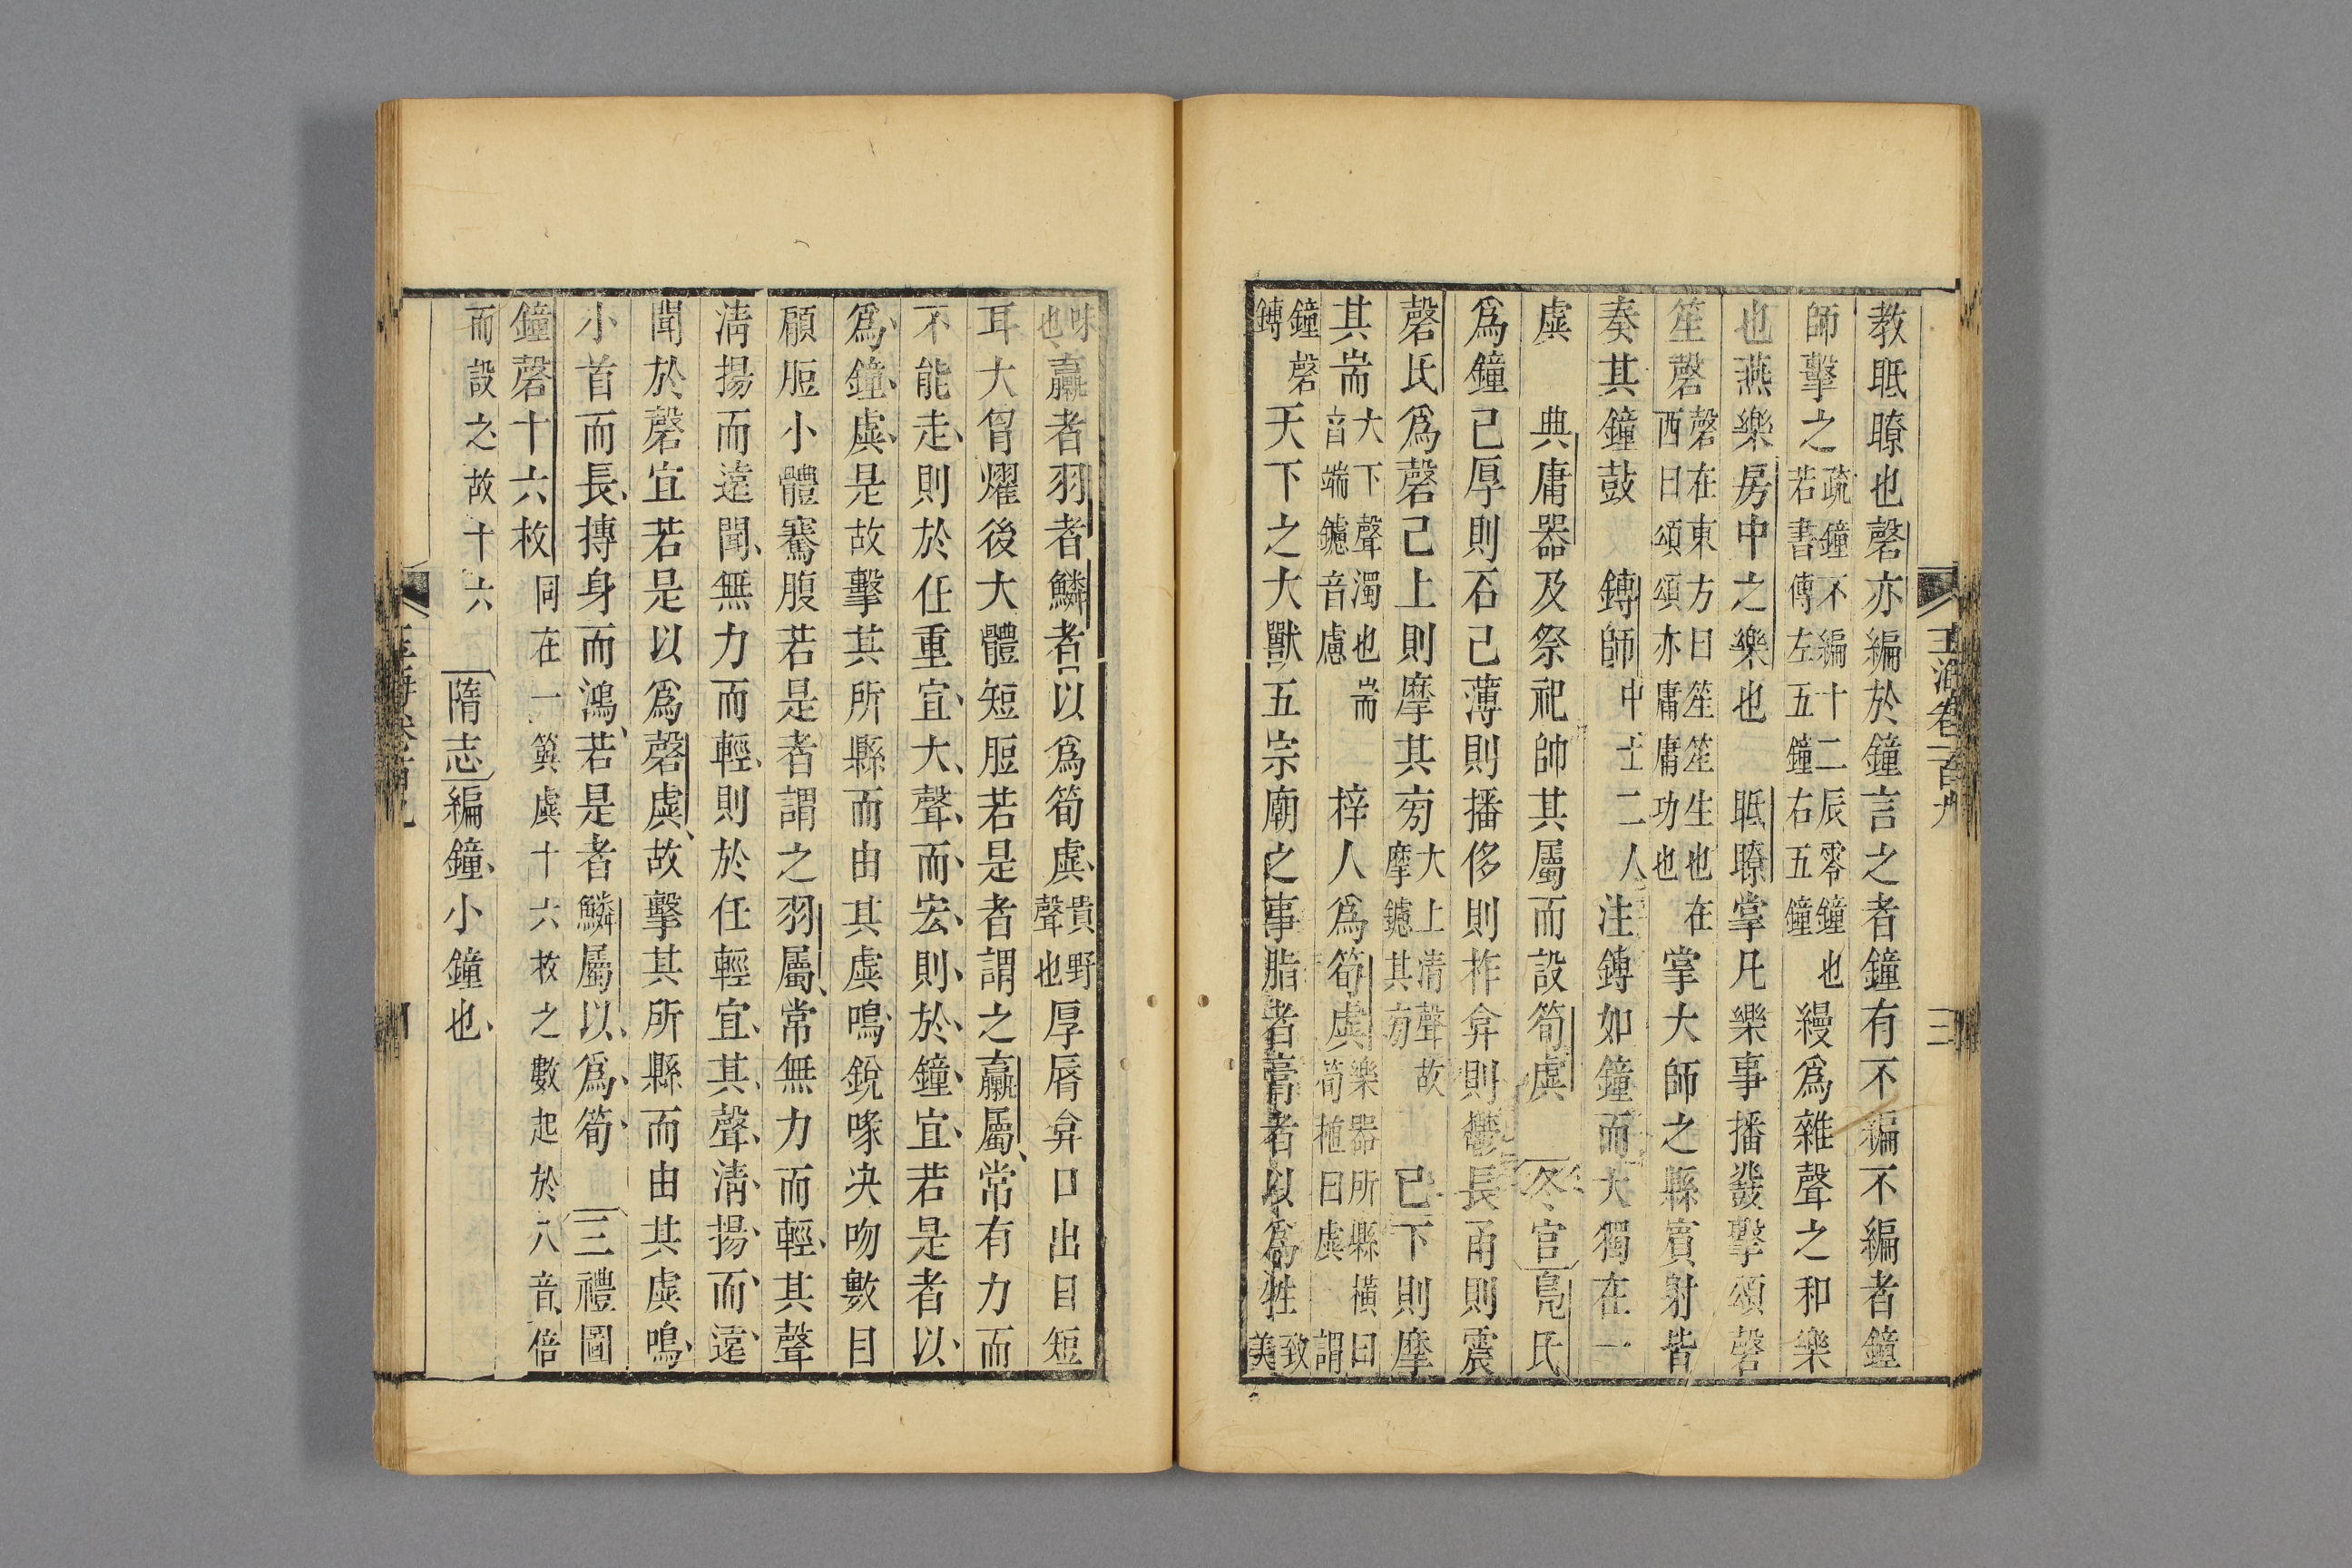 玉海卷一百九 三
教眡瞭也磬亦編於鐘言之者鐘有不編不編者鐘
師擊之疏鐘不編十二辰零鐘也若書傳左五鐘右五鐘縵爲雜聲之和樂
也燕樂房中之樂也 眡瞭掌凡樂事播鼗擊頌磬
笙磬磬在東方曰笙笙生也在西曰頌頌亦庸庸功也掌大師之縣賓射皆
奏其鐘鼓 鎛師中士二人注鎛如鐘而大獨在一
虡 典庸器及祭祀帥其屬而設筍虡 冬官鳧氏
爲鐘已厚則石已薄則播侈則柞弇則鬱長甬則震
磬氏爲磬已上則摩其㫄大上清聲故摩鑢其㫄 已下則摩
其耑大下聲濁也耑音端鑢音慮 梓人爲筍虡樂器所縣橫曰筍植曰虡 謂
鐘磬鎛天下之大獸五宗廟之事脂者膏者以爲牲致美
味也臝者羽者鱗者以爲筍虡貴野聲也厚脣弇口出目短
耳大胷燿後大體短脰若是者謂之臝屬常有力而
不能走則於任重宜大聲而宏則於鐘宜若是者以
爲鐘虡是故擊其所縣而由其虡鳴銳喙决吻數目
顅脰小體騫腹若是者謂之羽屬常無力而輕其聲
淸揚而遠聞無力而輕則於任輕宜其聲淸揚而遠
聞於磬宜若是以爲磬虡故擊其所縣而由其虡鳴
小首而長摶身而鴻若是者鱗屬以爲筍 三禮圖
鐘磬十六枚同在一簨虡十六枚之數起於八音倍
而設之故十六 隋志編鐘小鐘也